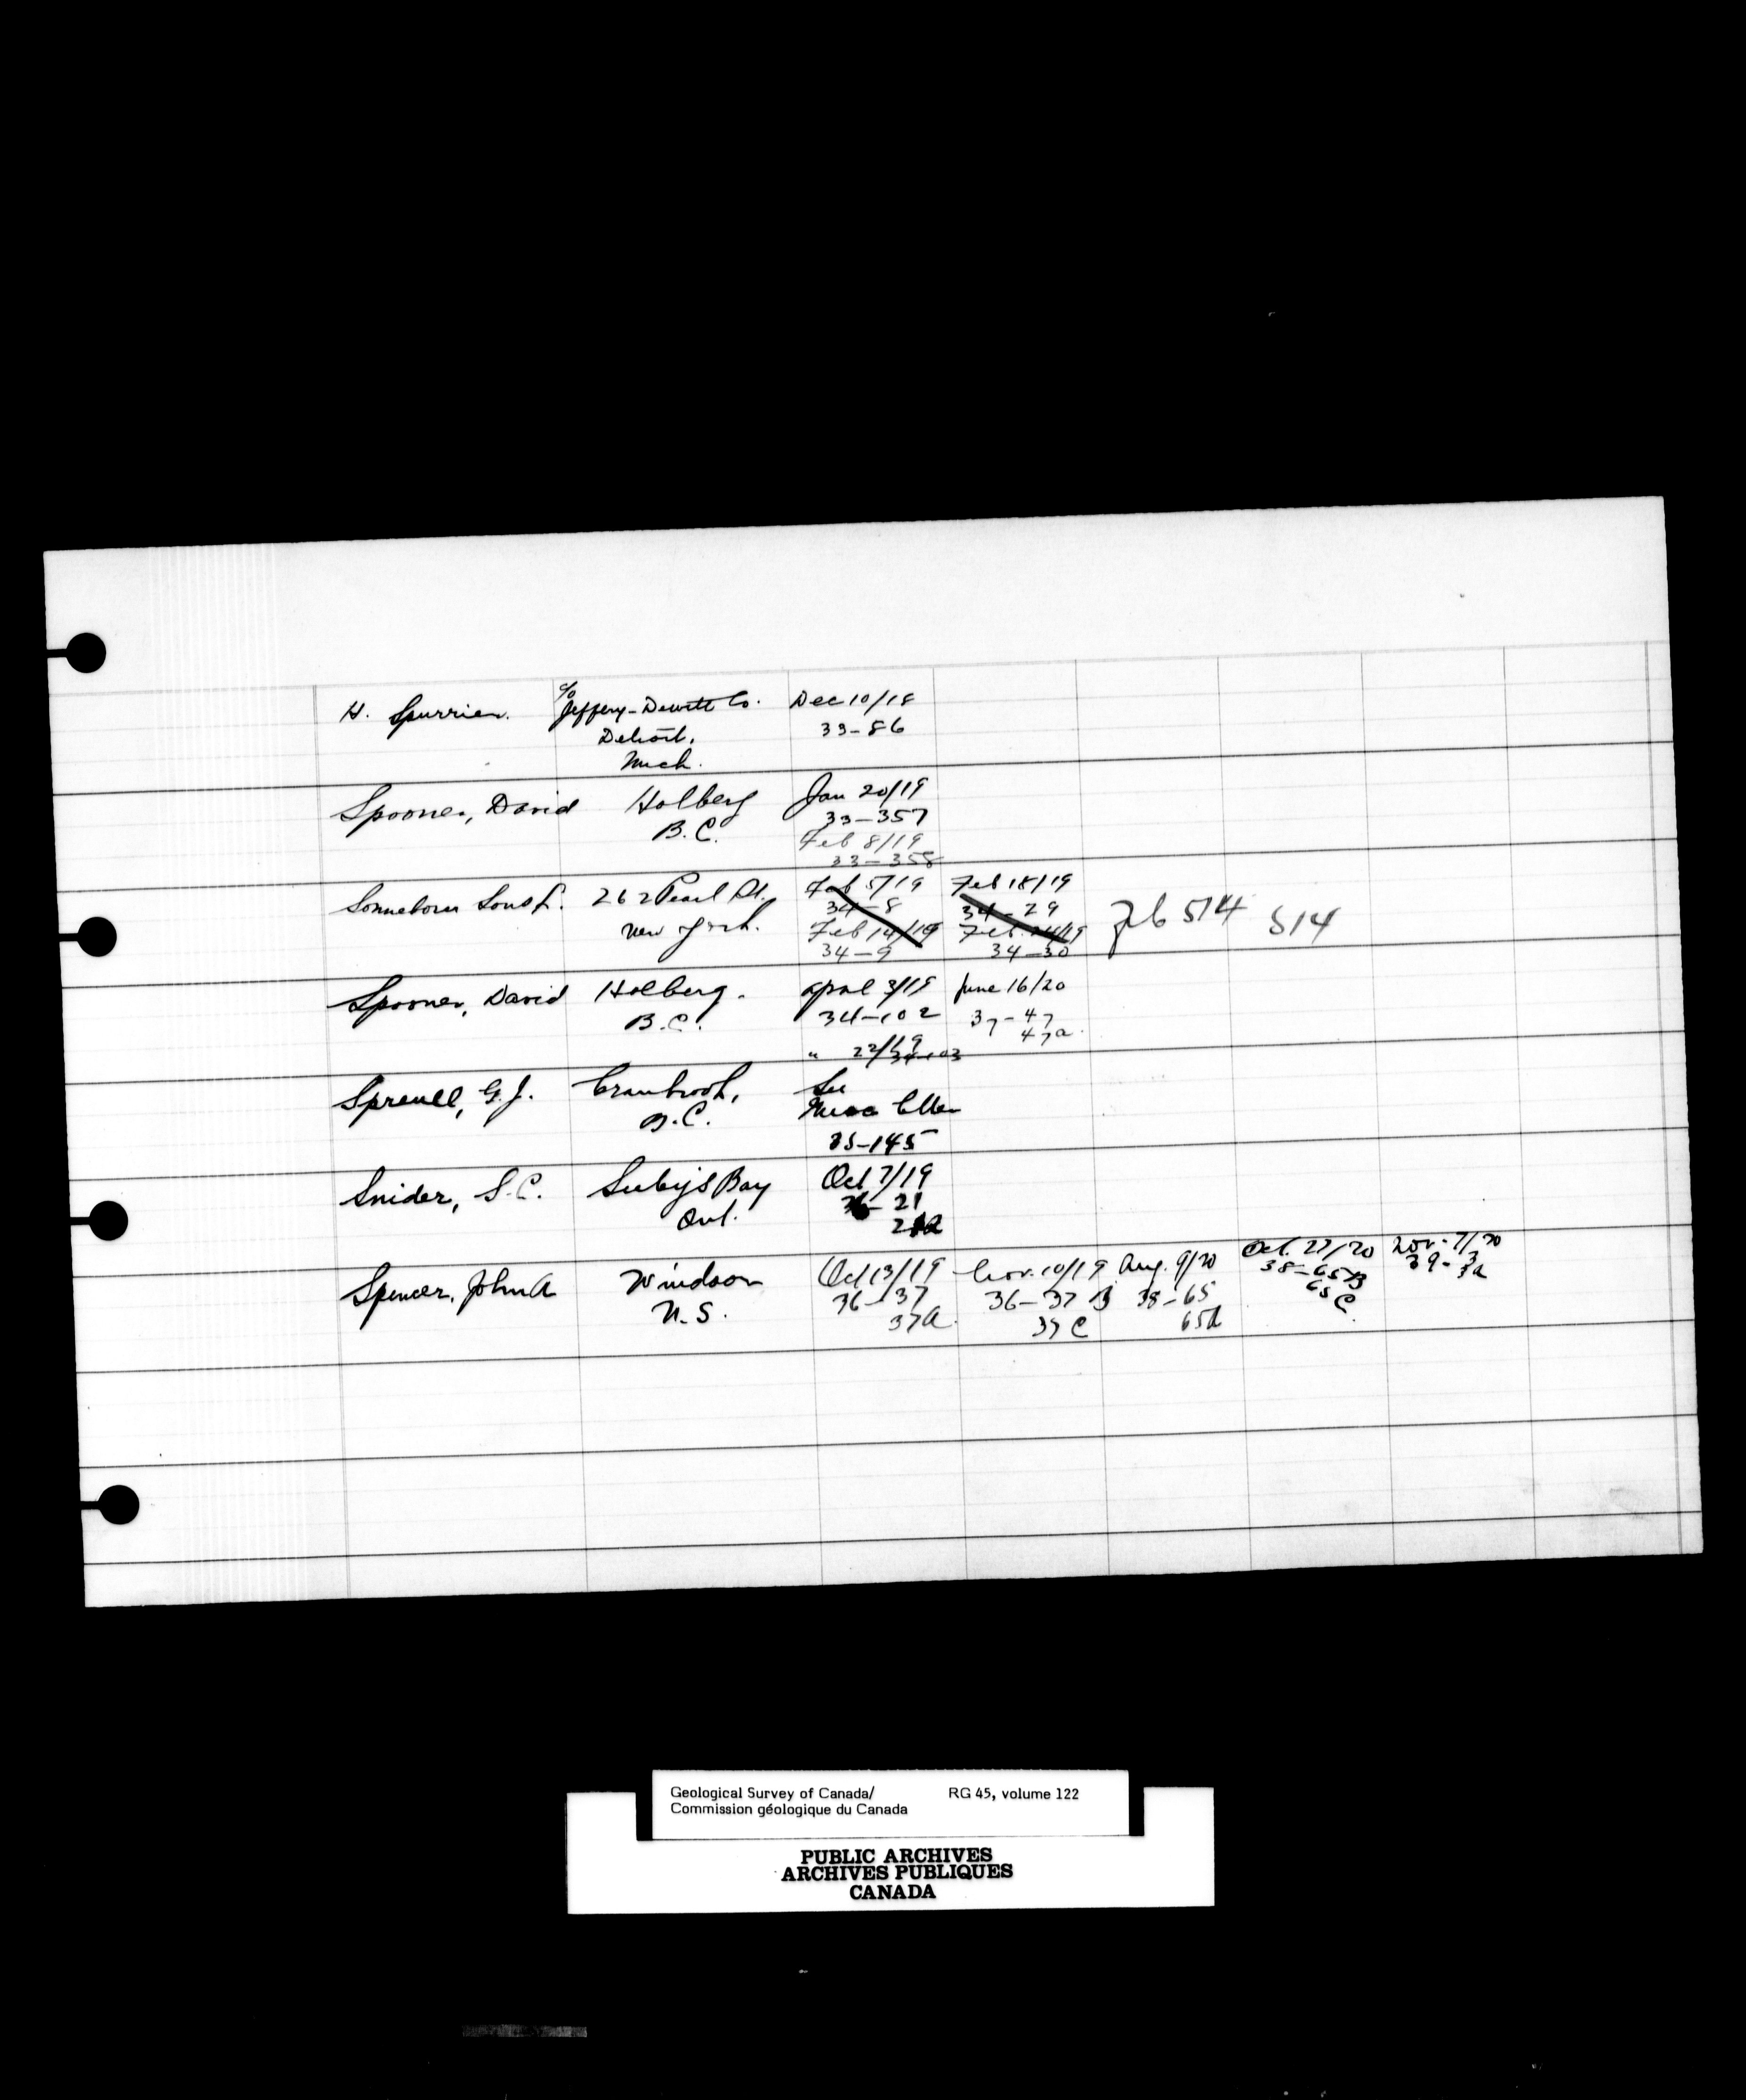 H. Spurrier. c/o Jeffery-Dewitt Co. Dec 10/18
Detroit, 33-86
Mich.
Spooner, David Holberg Jan 20/19
B.C. 33-357
Feb 8/19
33-358
Sonneborn Sons L. 262 Pearl St. Feb 5/19 Feb 18/19
34-8 34-29 Feb 514 514
New York. Feb 14/19 Feb 24/19
34-9 34-30
Spooner, David Holberg. April 3/19 June 16/20
B.C. 34-102 37-47
47a.
" 22/19
34-103
G.J. Cranbrook, See
B.C.
35-145
Snider, S.C. Seeley's Bay Oct 7/19
Ont. 36-21
21a
Spencer, John A Windsor Oct 13/19 Nov. 10/19 Aug. 9/20 Oct. 27/20 Nov. 7/20
N.S. 36-37 36-37 B 38-65 38-65B 39-3
37a. 37 C 65a 65 C. 3a
Geological Survey of Canada/ RG 45, volume 122
Commission géologique du Canada
PUBLIC ARCHIVES
ARCHIVES PUBLIQUES
CANADA